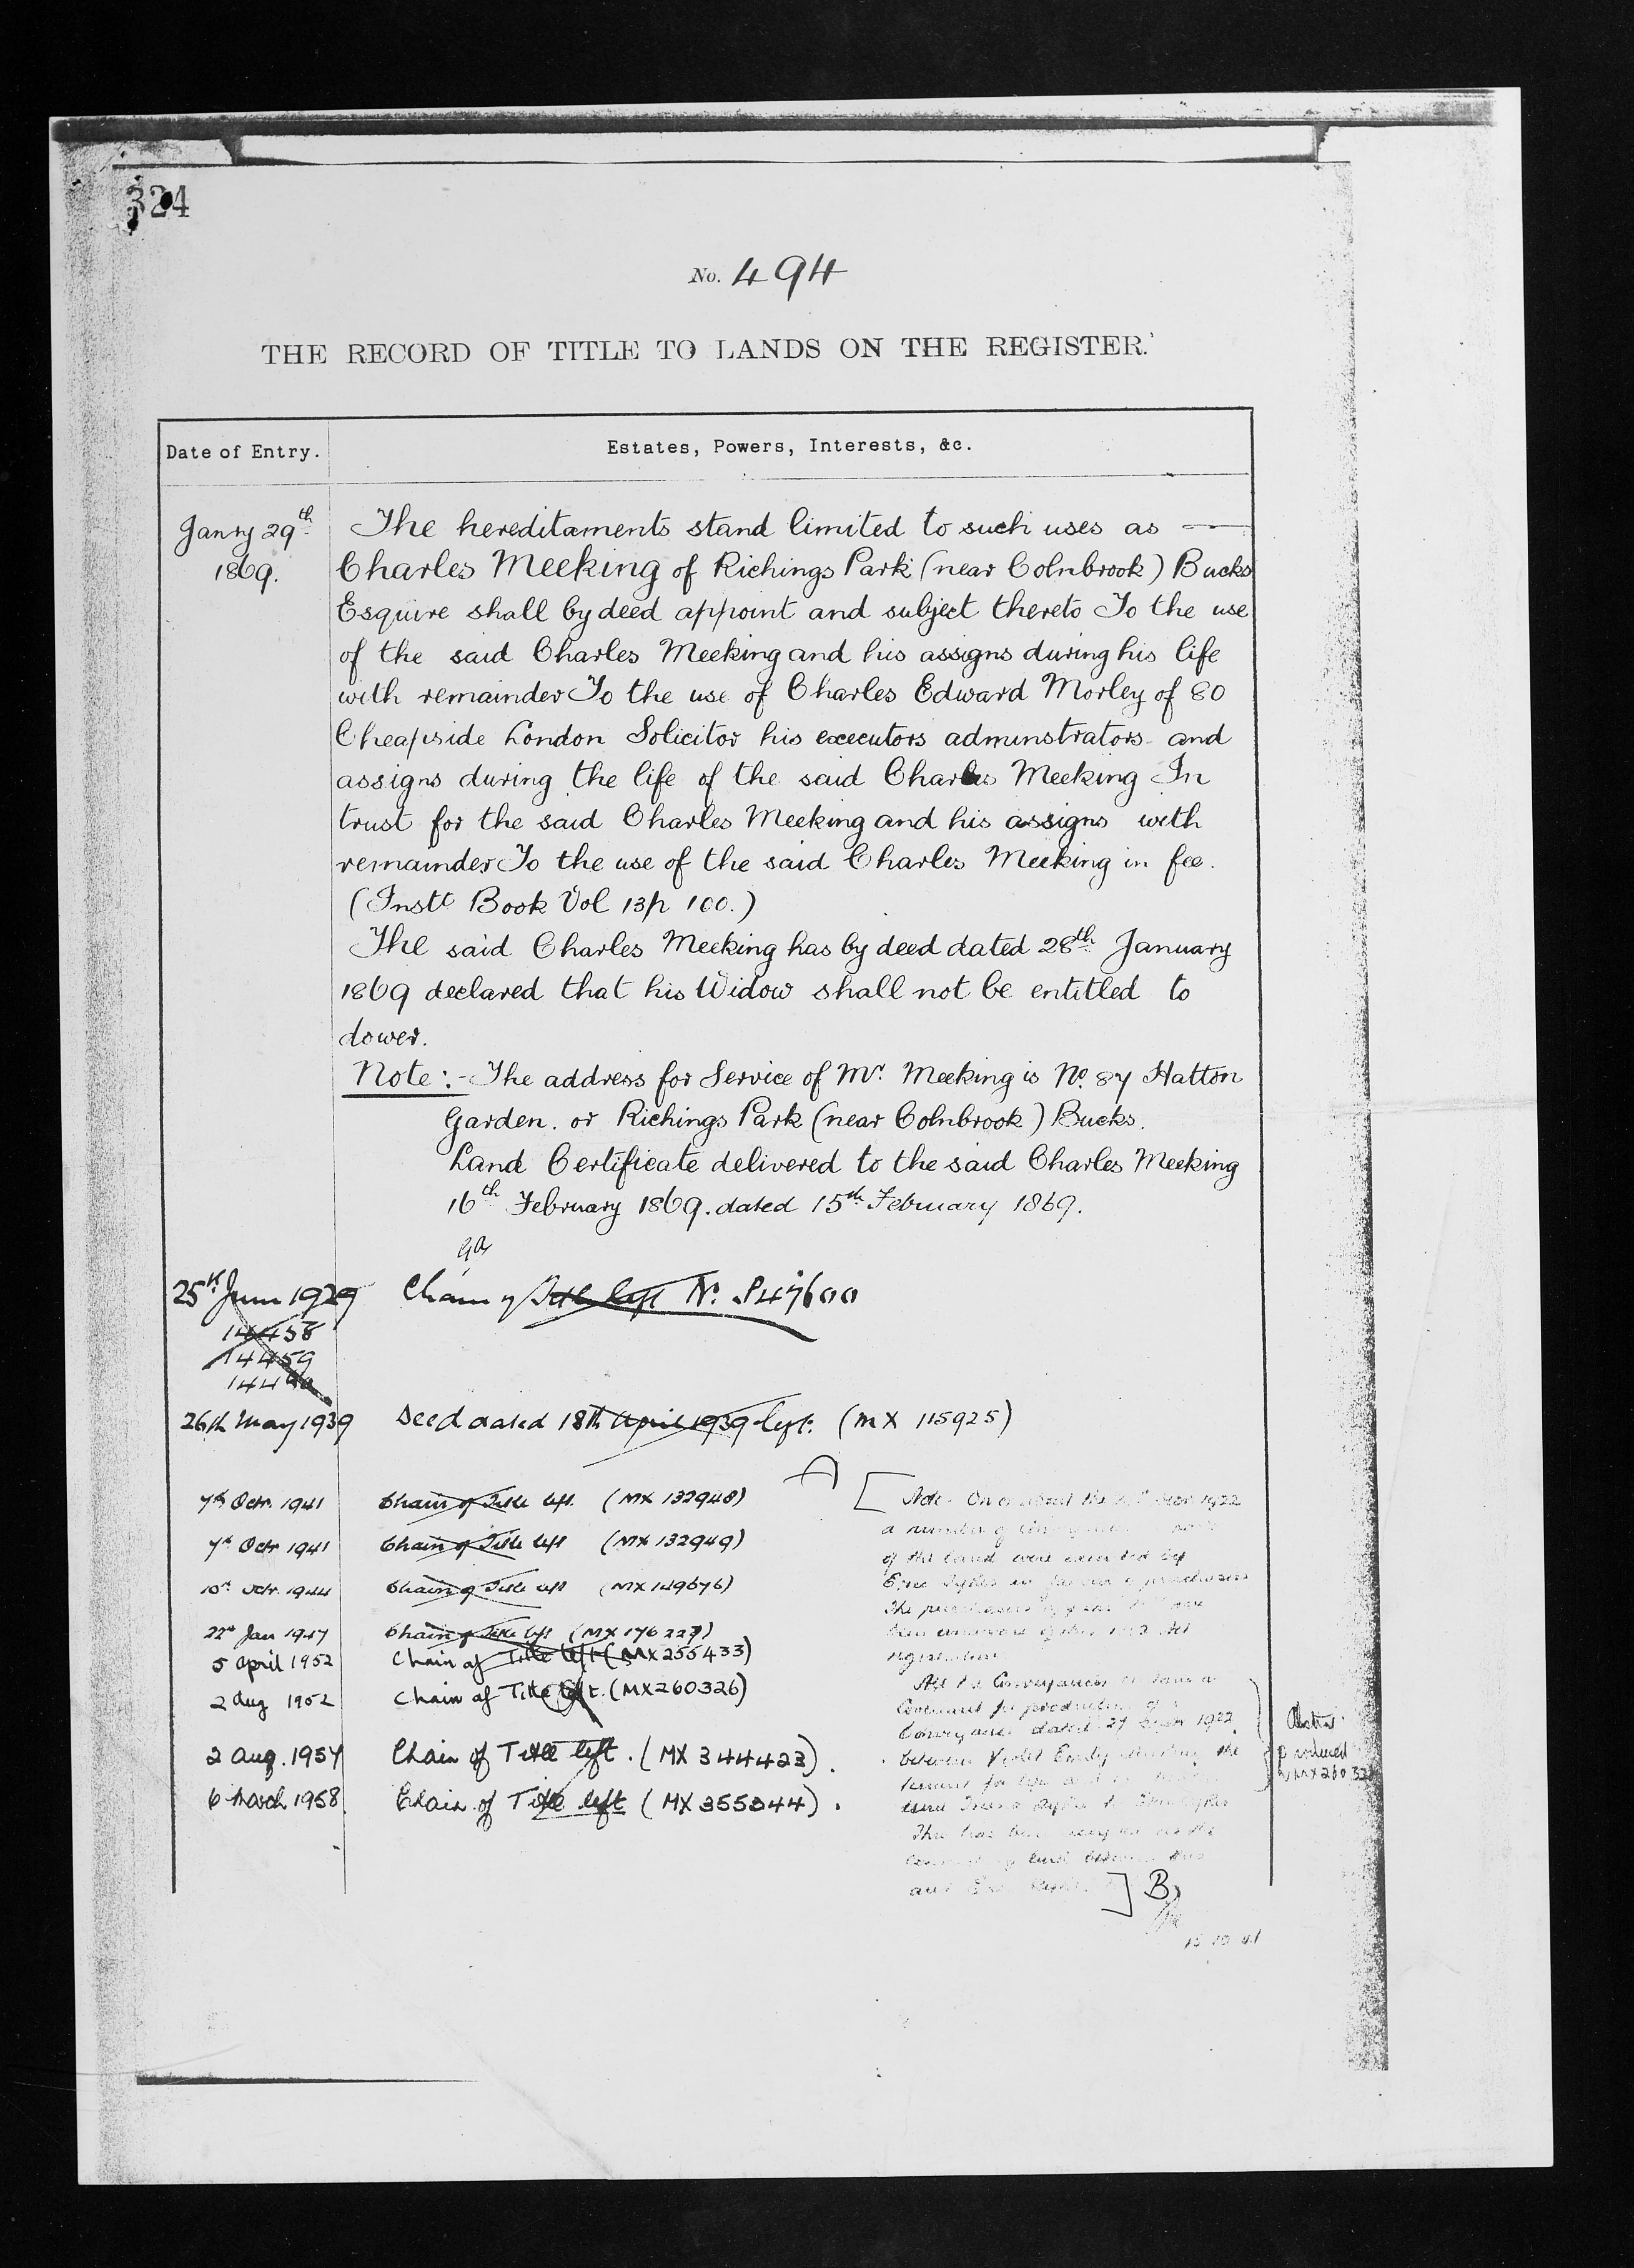 324
No. 494
THE RECORD OF TITLE TO LANDS ON THE REGISTER.
Date of Entry.
Estates, Powers, Interests, &c.
Janry 29th
1869.
The hereditaments stand limited to such uses as
Charles Meeking of Richings Park (near Colnbrook) Bucks
Esquire shall by deed appoint and subject thereto To the use
of the said Charles Meeking and his assigns during his life
with remainder To the use of Charles Edward Morley of 80
Cheapside London Solicitor his executors adminstrators and
assigns during the life of the said Charles Meeking In
trust for the said Charles Meeking and his assigns with
remainder To the use of the said Charles Meeking in fee.
(Instt Book Vol 13 p 100.)
The said Charles Meeking has by deed dated 28th January
1869 declared that his Widow shall not be entitled to
dower.
Note:- The address for Service of Mr. Meeking is No. 87 Hatton
Garden. or Richings Park (near Colnbrook) Bucks.
Land Certificate delivered to the said Charles Meeking
16th February 1869. dated 15th February 1869.
25th June 1929 Chain of Title left No. P47600
14458
14459
26th May 1939 Deed dated 18th April 1939 left. (MX 115925)
7th Octr. 1941 Chain of Title left. (MX 132948)
7th Octr 1941 Chain of Title left (MX 132949)
10th Octr. 1944 Chain of Title left (MX 149676)
22nd Jan 1947 Chain of Title left (MX 176227)
5 April 1952 Chain of Title left (MX 255433)
2 Aug 1952 Chain of Title left. (MX260326)
2 Aug. 1957 Chain of Title left. (MX 344423).
6 March 1958 Chain of Title left (MX 355344).
A
[ Note - On or about the 1922
a number of
of the land were executed by
in favour of purchasers
The purchasers
registration
All the Conveyances
Covenant for production of a
Conveyance dated 27 1922
between Violet Emily the
tenant for life
This has been
land between
and ] B
15 10 41
Abstract
produced
MX260326